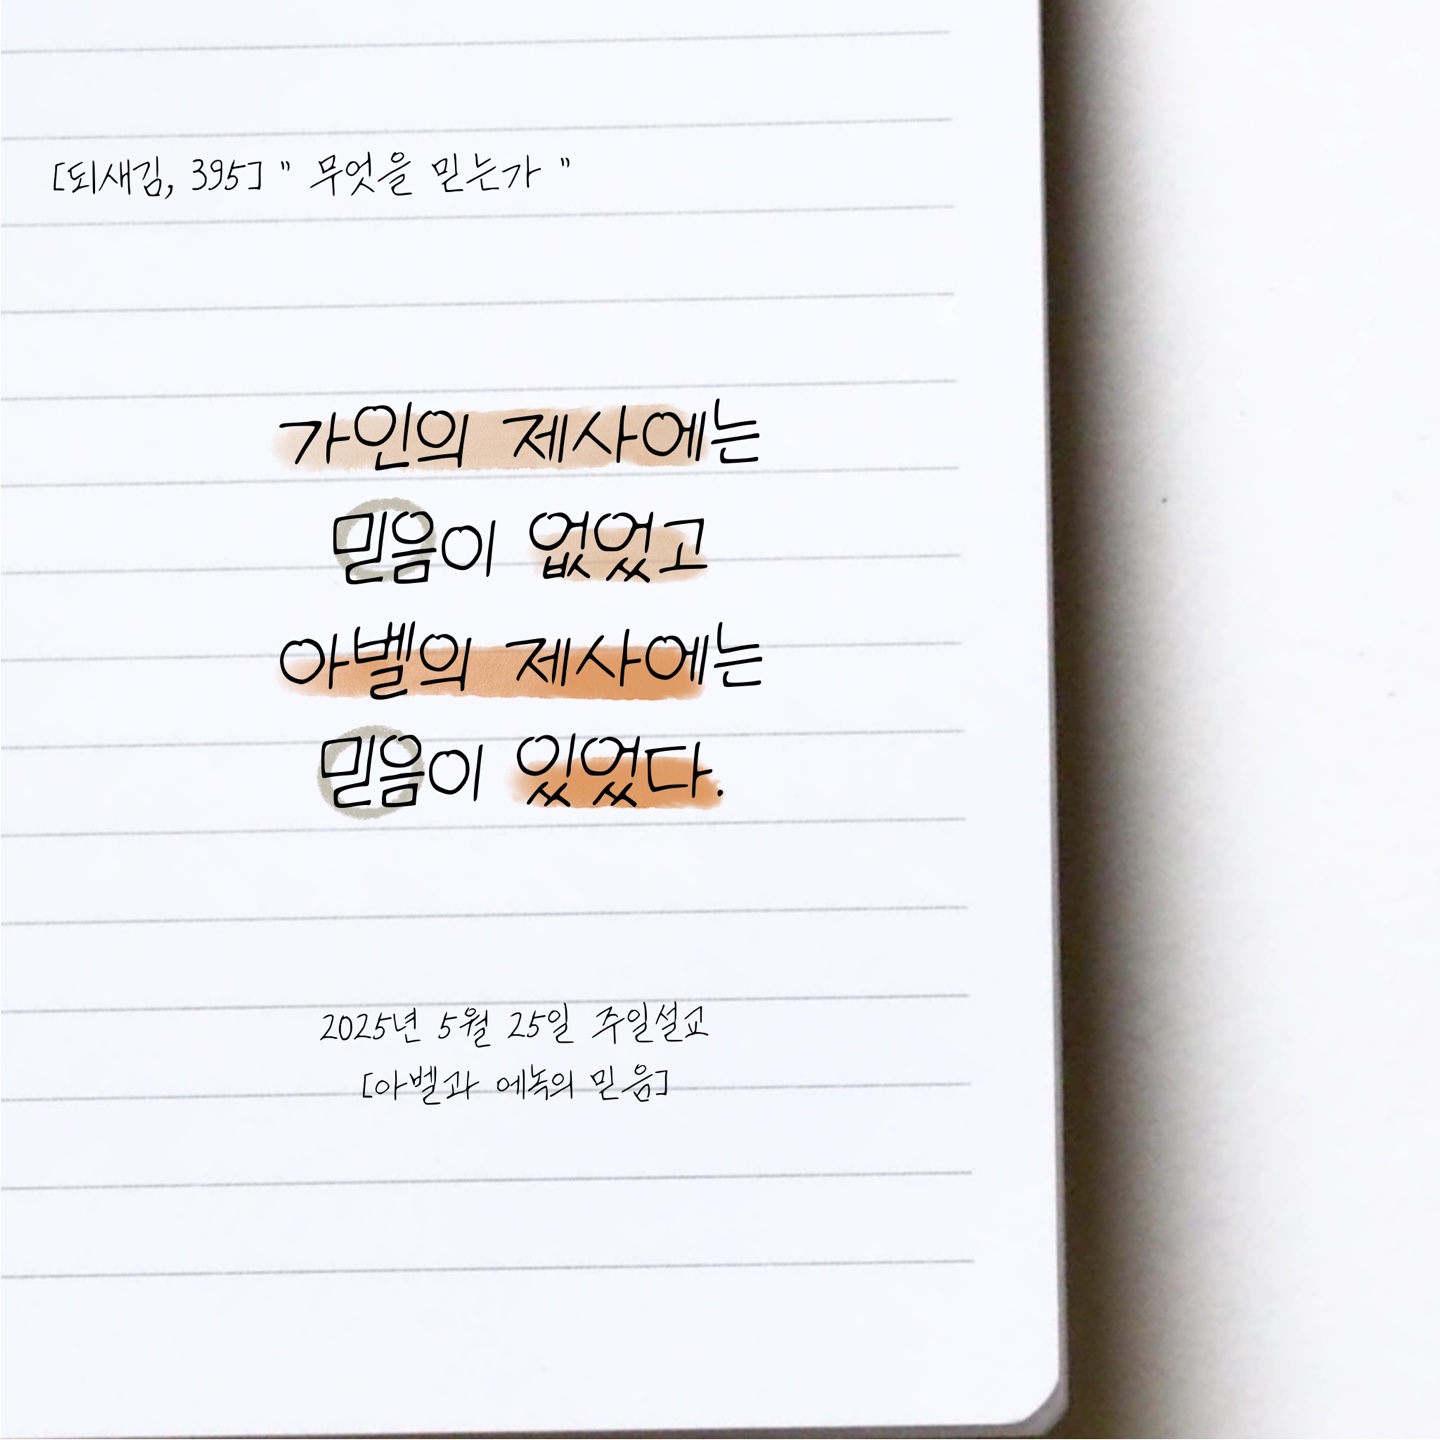 [되새김, 395] " 무엇을 믿는가 "
가인의 제사에는
믿음이 없었고
아벨의 제사에는
믿음이 있었다.
2025년 5월 25일 주일설교
[아벨과 에녹의 믿음]